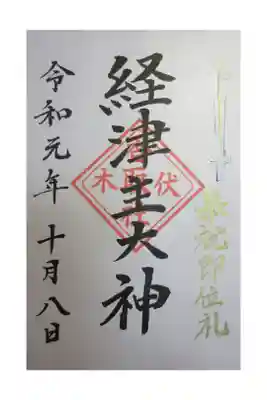 奉祝即位礼
経津主大神
伏木
令和元年 十月八日